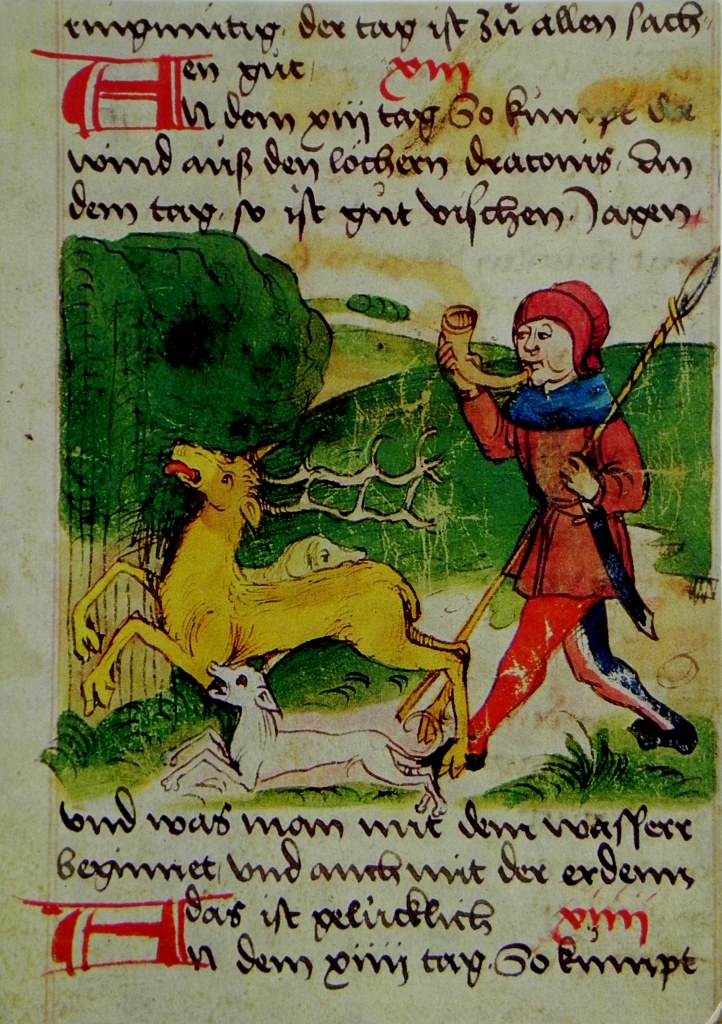 ringmüttig der tag ist zů allen sach
en gůt xiii
An dem xiii tag So kumpt der
wind auß den löchern draconis. An
dem tag so ist gůt vischen Jagen
vnd was man mit dem wasserr
beginnet vnd auch mit der erdenn
das ist gelücklich xiiii
An dem xiiii tag So kumpt